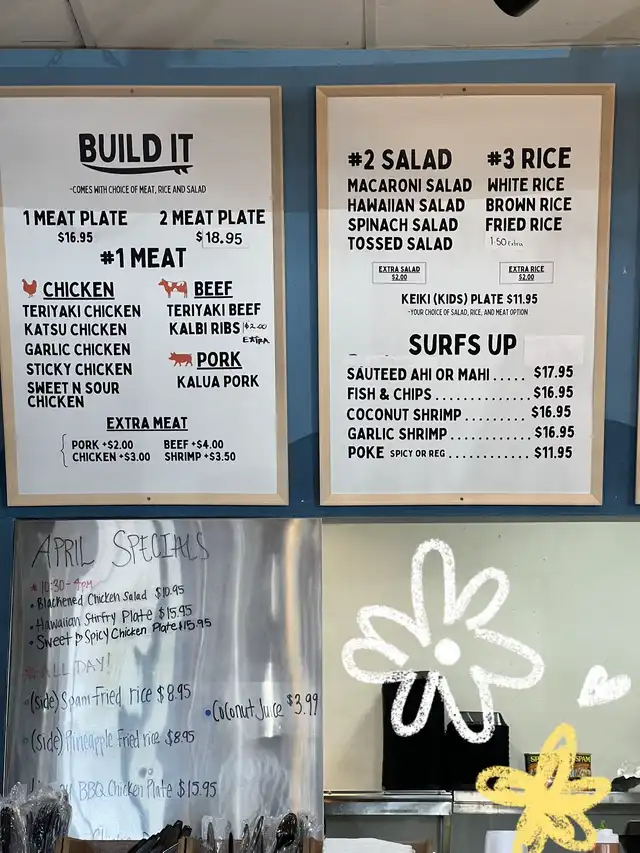 BUILD IT
-COMES WITH CHOICE OF MEAT, RICE AND SALAD
1 MEAT PLATE
$16.95
2 MEAT PLATE
$18.95
#1 MEAT
CHICKEN
TERIYAKI CHICKEN
KATSU CHICKEN
GARLIC CHICKEN
STICKY CHICKEN
SWEET N SOUR
CHICKEN
BEEF
TERIYAKI BEEF
KALBI RIBS $2.00
EXTRA
PORK
KALUA PORK
EXTRA MEAT
PORK +$2.00 BEEF +$4.00
CHICKEN +$3.00 SHRIMP +$3.50
#2 SALAD
MACARONI SALAD
HAWAIIAN SALAD
SPINACH SALAD
TOSSED SALAD
EXTRA SALAD
$2.00
#3 RICE
WHITE RICE
BROWN RICE
FRIED RICE
1.50 Extra
EXTRA RICE
$2.00
KEIKI (KIDS) PLATE $11.95
-YOUR CHOICE OF SALAD, RICE, AND MEAT OPTION
SURFS UP
SAUTEED AHI OR MAHI ..... $17.95
FISH & CHIPS ............. $16.95
COCONUT SHRIMP ......... $16.95
GARLIC SHRIMP ........... $16.95
POKE SPICY OR REG ........... $11.95
APRIL SPECIALS
* 10:30-4pm
• Blackened Chicken Salad $10.95
• Hawaiian Stirfry Plate $15.95
• Sweet & Spicy Chicken Plate $15.95
* ALL DAY!
(side) Spam Fried rice $8.95
• Coconut Juice $3.99
(side) Pineapple Fried rice $8.95
BBQ Chicken Plate $15.95
SPAM